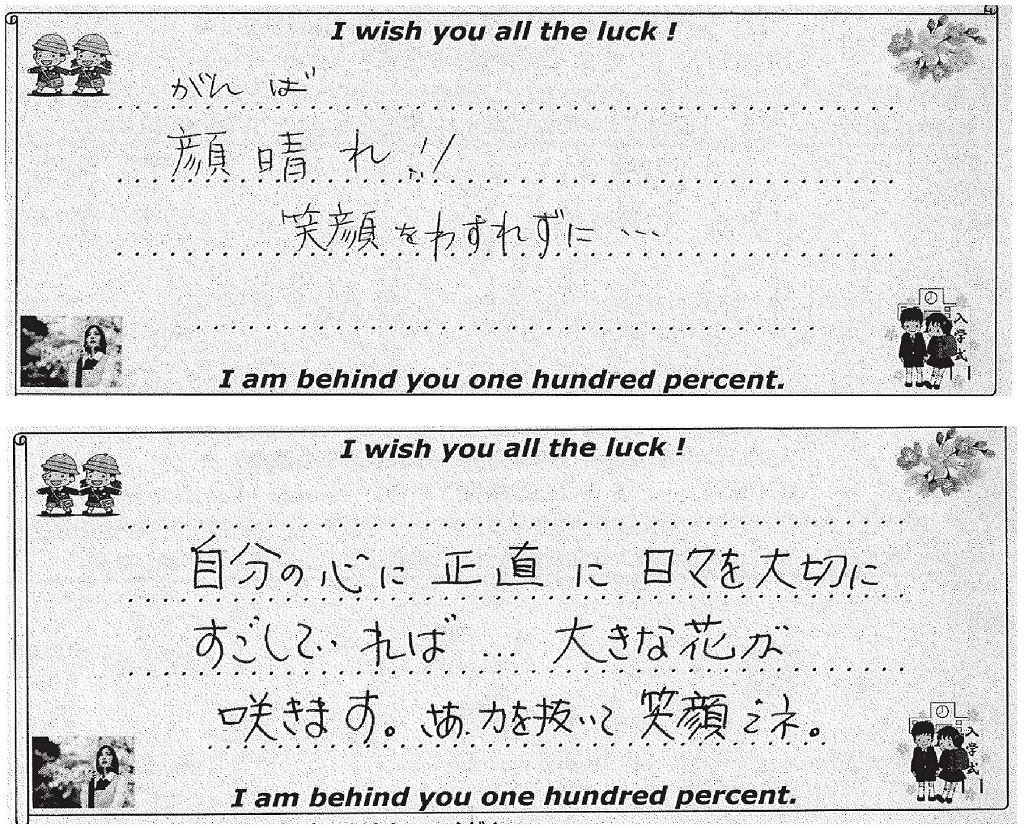 I wish you all the luck !
がんば
顔晴れ!!
笑顔をわすれずに…
入学式
I am behind you one hundred percent.
I wish you all the luck !
自分の心に正直に日々を大切に
すごしていれば…大きな花が
咲きます。さあ、力を抜いて笑顔でネ。
入学式
I am behind you one hundred percent.